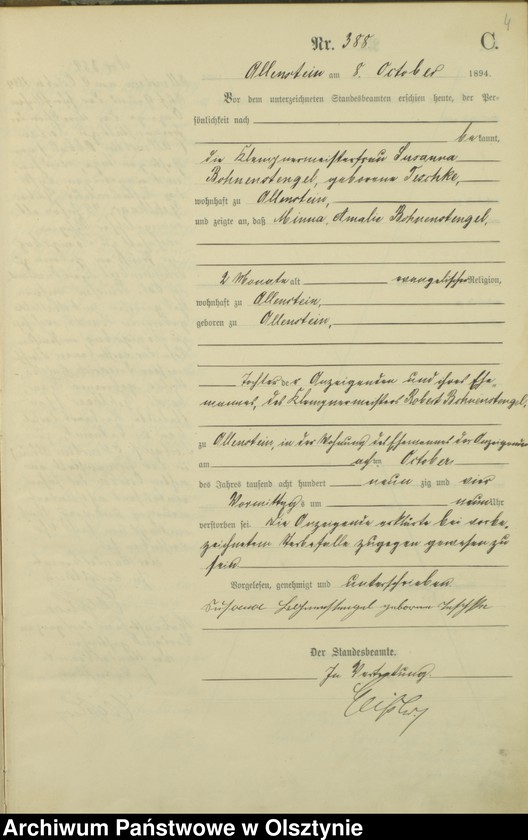 4
Nr. 388 C.
Allenstein am 8. October 1894.
Vor dem unterzeichneten Standesbeamten erschien heute, der Per-
sönlichkeit nach
bekannt,
die Klempnermeisterfrau Susanna
Bohnenstengel, geborene Teschke,
wohnhaft zu Allenstein,
und zeigte an, daß Minna Amalie Bohnenstengel,
2 Monate alt evangelischer Religion,
wohnhaft zu Allenstein,
geboren zu Allenstein,
Tochter der Anzeigenden und ihres Ehe-
mannes, des Klempnermeisters Robert Bohnenstengel,
zu Allenstein, in der Wohnung des Ehemannes der Anzeigenden
am achten October
des Jahres tausend acht hundert neunzig und vier
Vormittags um neun Uhr
verstorben sei. Die Anzeigende erklärte bei vorbe-
zeichnetem Sterbefalle zugegen gewesen zu
sein.
Vorgelesen, genehmigt und unterschrieben
Susanna Bohnenstengel geborene Teschke
Der Standesbeamte.
In Vertretung
Archiwum Państwowe w Olsztynie